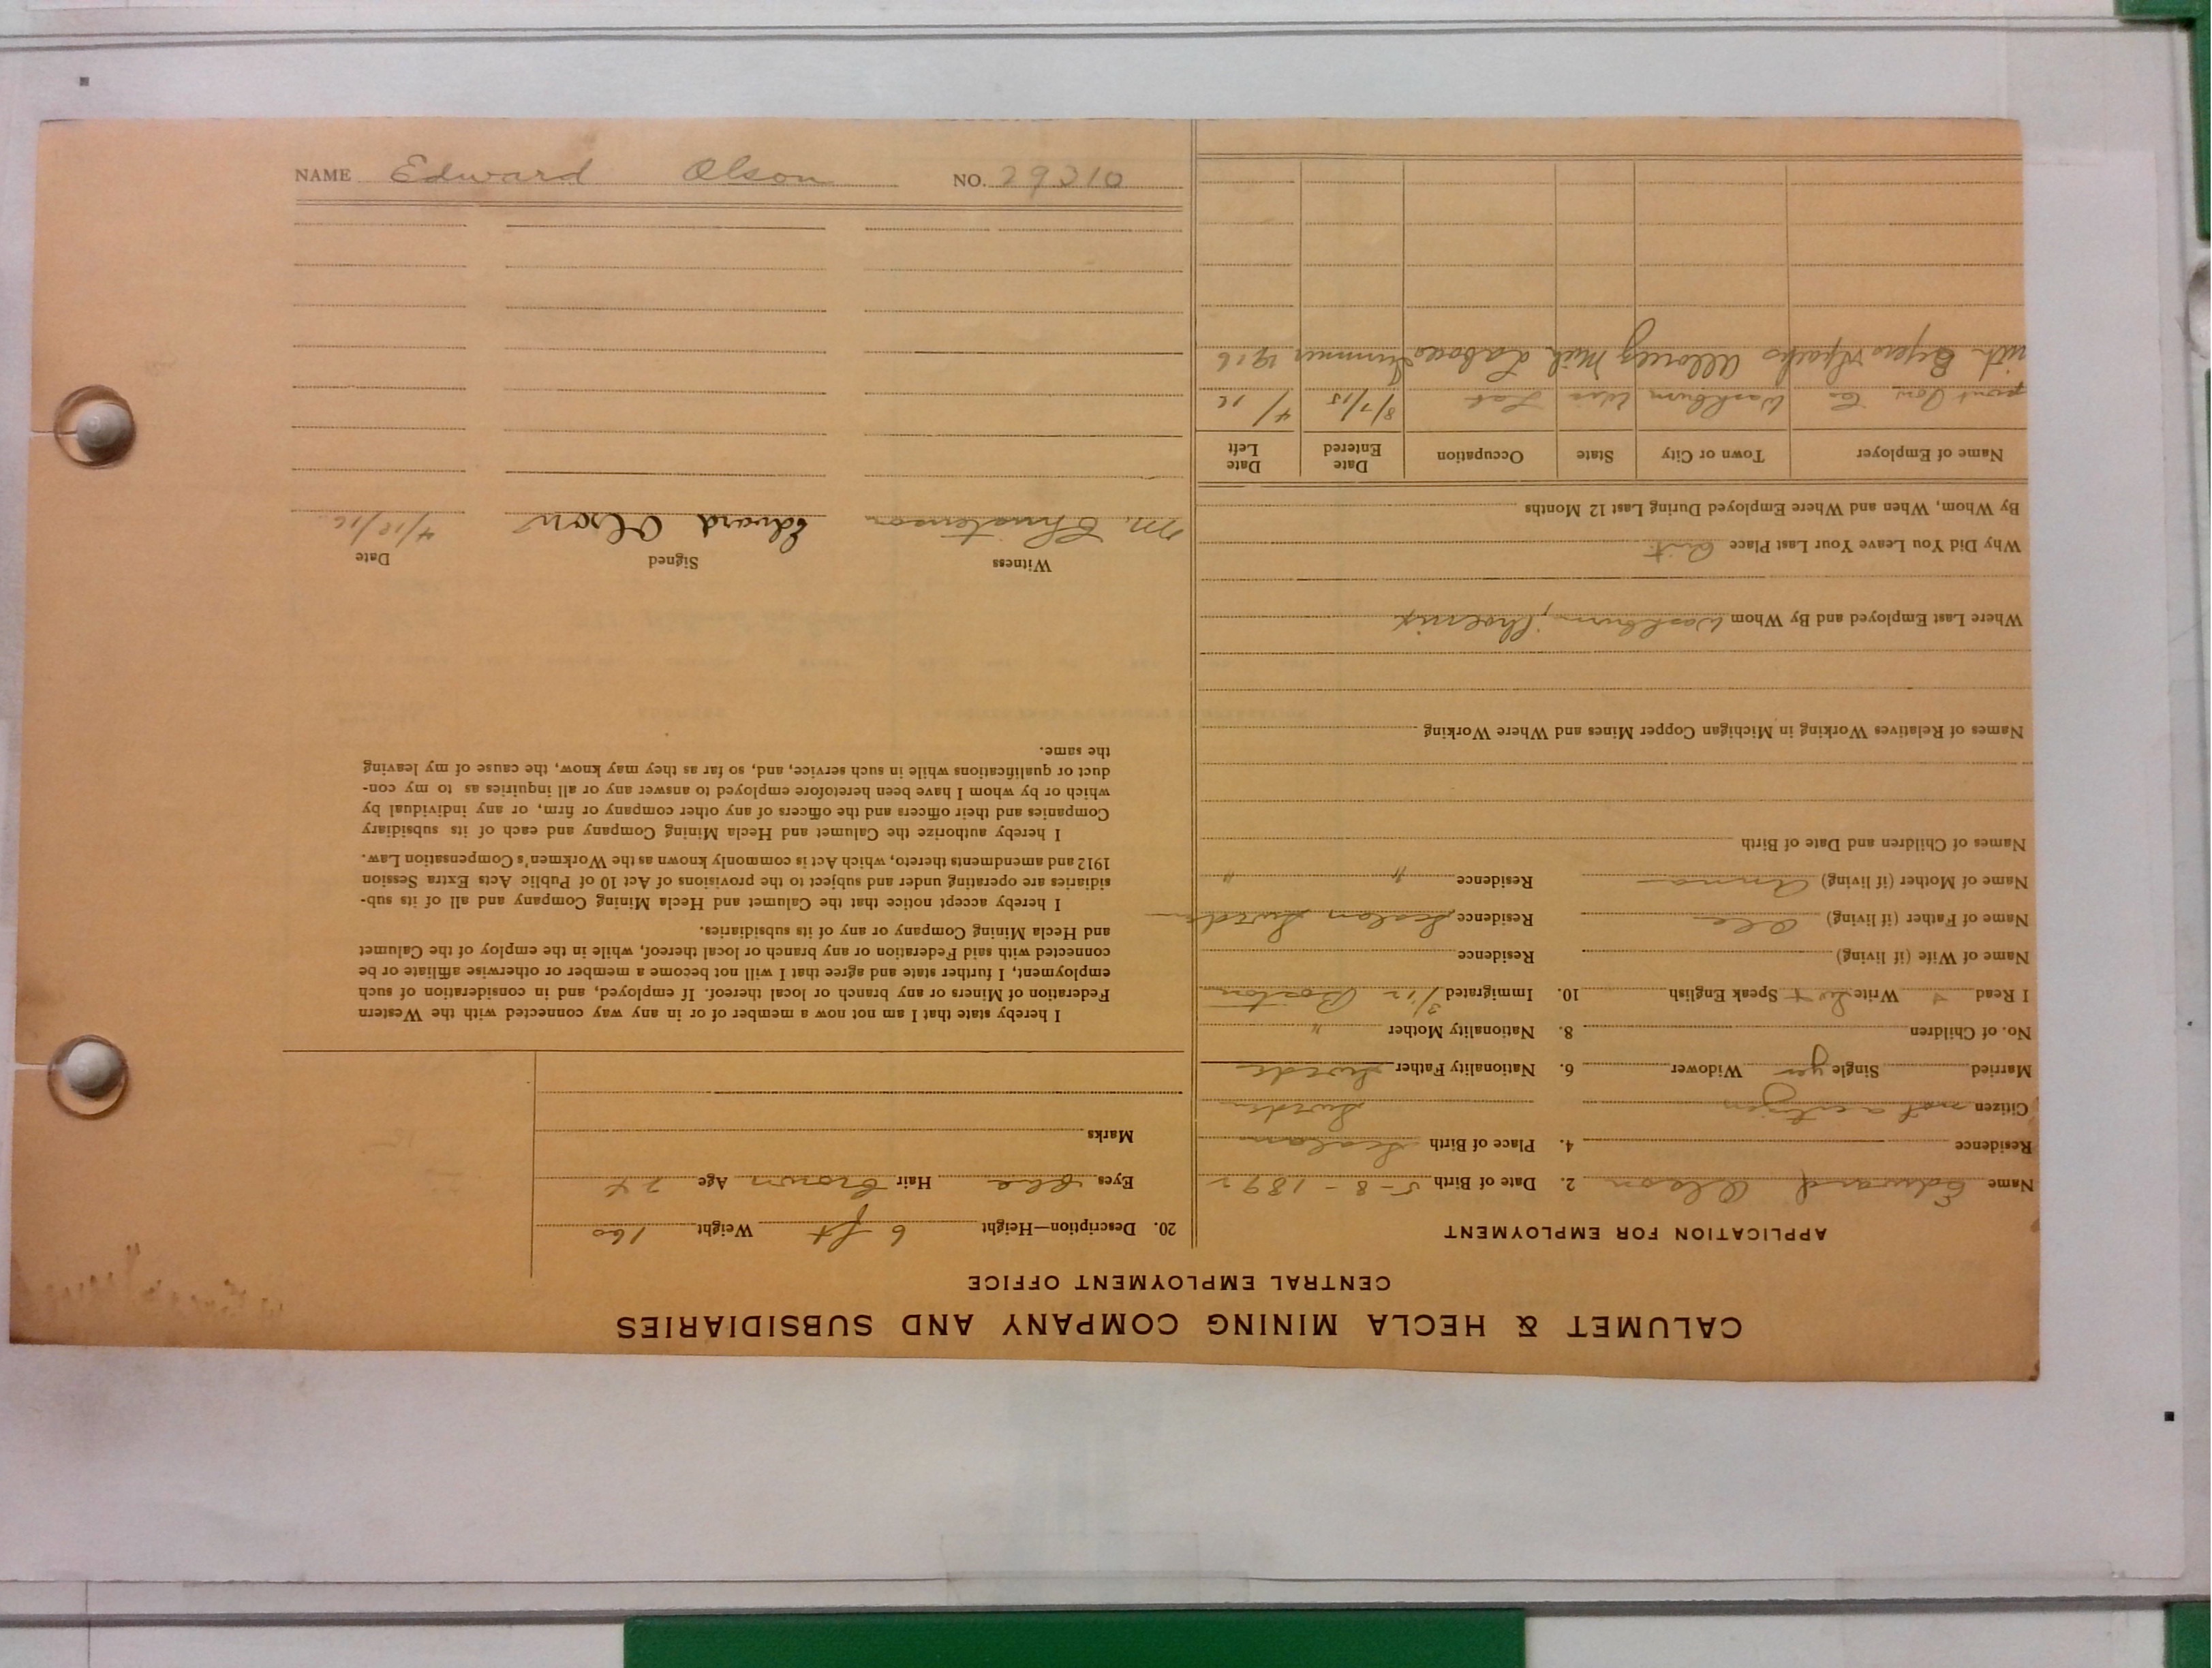 CALUMET & HECLA MINING COMPANY AND SUBSIDIARIES
CENTRAL EMPLOYMENT OFFICE
APPLICATION FOR EMPLOYMENT
Name Edward Olson 2. Date of Birth 5-8-1892
Residence 4. Place of Birth
Citizen not a citizen Sweden
Married Single yes Widower 6. Nationality Father Swede
No. of Children 8. Nationality Mother "
I Read Write Speak English 10. Immigrated 3/12 Boston
Name of Wife (if living) Residence
Name of Father (if living) Ole Residence Sweden
Name of Mother (if living) Anna Residence " "
Names of Children and Date of Birth
Names of Relatives Working in Michigan Copper Mines and Where Working
Where Last Employed and By Whom Washburn, Phoenix
Why Did You Leave Your Last Place Quit
By Whom, When and Where Employed During Last 12 Months
Name of Employer Town or City State Occupation Date Entered Date Left
Co Washburn Wis Lab 8/7/15 4/16
Allouez Mich Laborer Summer 1916
20. Description—Height 6 ft Weight 160
Eyes Blue Hair Brown Age 24
Marks
I hereby state that I am not now a member of or in any way connected with the Western
Federation of Miners or any branch or local thereof. If employed, and in consideration of such
employment, I further state and agree that I will not become a member or otherwise affiliate or be
connected with said Federation or any branch or local thereof, while in the employ of the Calumet
and Hecla Mining Company or any of its subsidiaries.
I hereby accept notice that the Calumet and Hecla Mining Company and all of its sub-
sidiaries are operating under and subject to the provisions of Act 10 of Public Acts Extra Session
1912 and amendments thereto, which Act is commonly known as the Workmen's Compensation Law.
I hereby authorize the Calumet and Hecla Mining Company and each of its subsidiary
Companies and their officers and the officers of any other company or firm, or any individual by
which or by whom I have been heretofore employed to answer any or all inquiries as to my con-
duct or qualifications while in such service, and, so far as they may know, the cause of my leaving
the same.
Witness Signed Date
M. Christenson Edward Olson 4/12/16
NAME Edward Olson NO. 29310